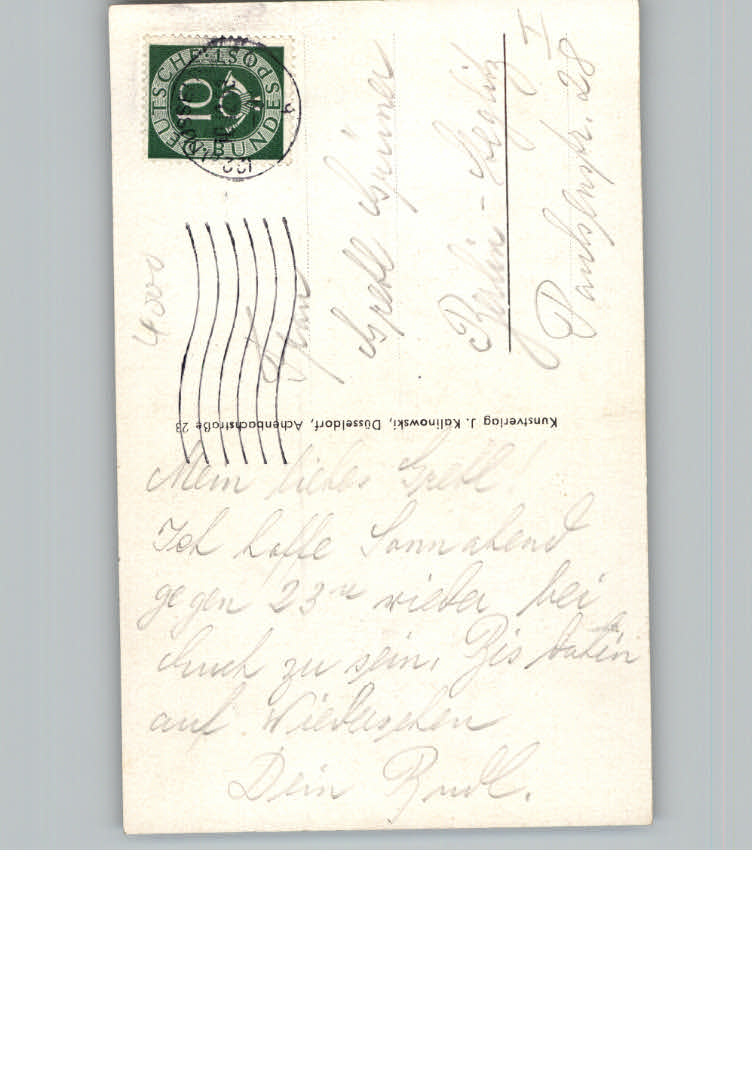 DEUTSCHE BUNDESPOST
10
4000
Frau
Gretl
Berlin-Steglitz
I
Paulsenstr. 28
Kunstverlag J. Kalinowski, Düsseldorf, Achenbachstraße 23
Mein liebes Gretl!
Ich hoffe Sonnabend
gegen 23 wieder bei
Euch zu sein. Bis dahin
auf Wiedersehen
Dein